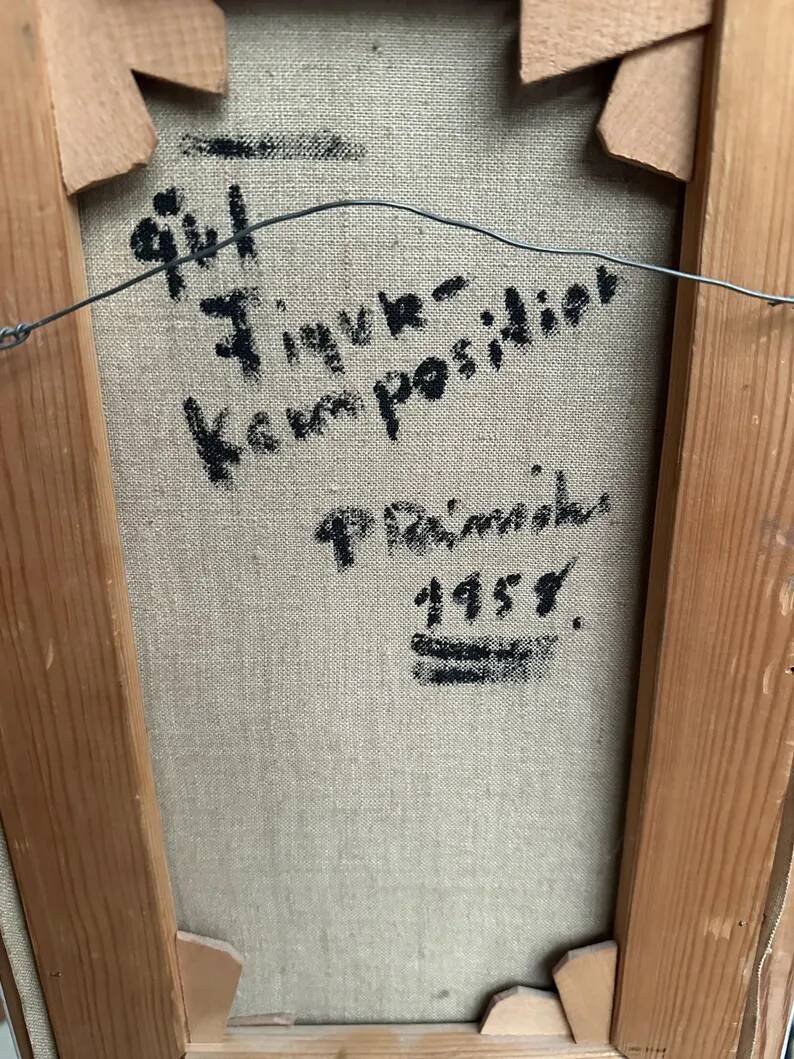 gul
Figur-
komposition
P
1958.